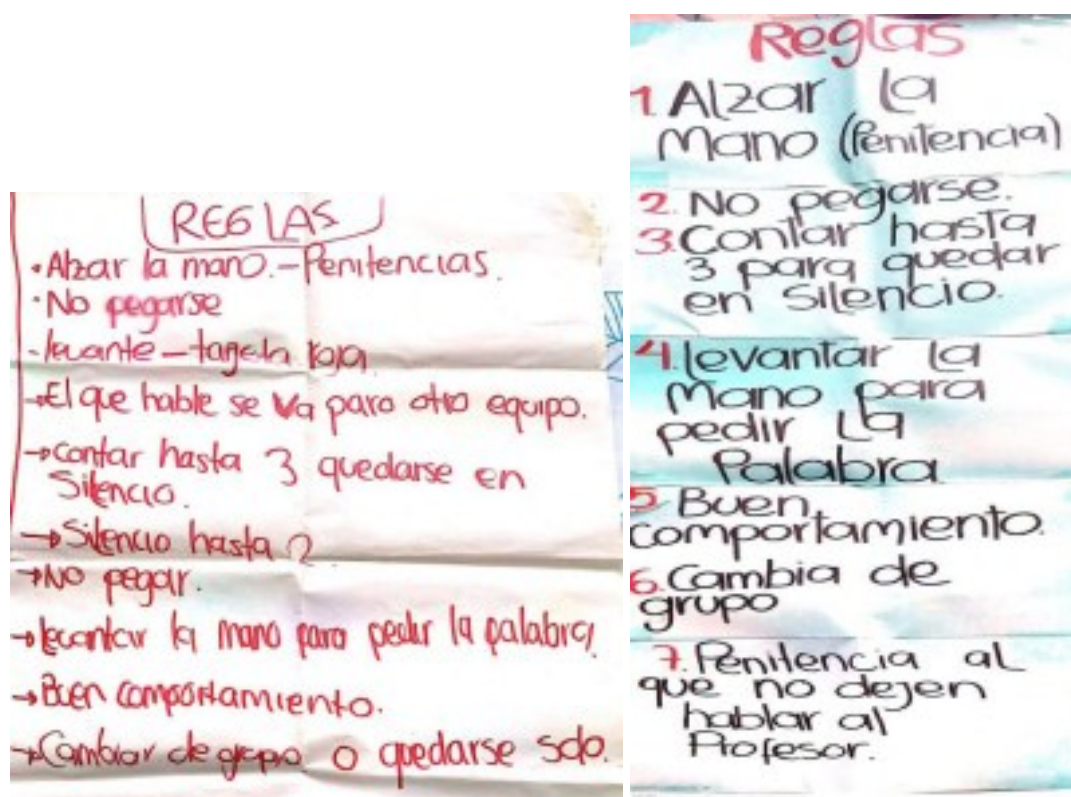 REGLAS
• Alzar la mano.- Penitencias.
• No pegarse
- levante - tarjeta roja
→ El que hable se va para otro equipo.
→ contar hasta 3 quedarse en
Silencio.
→ Silencio hasta
→ No pegar.
→ levantar la mano para pedir la palabra
→ Buen comportamiento.
→ Cambiar de grupo o quedarse solo.
Reglas
1. Alzar la
Mano (Penitencia)
2. No pegarse.
3. Contar hasta
3 para quedar
en Silencio.
4. levantar la
Mano para
pedir La
Palabra
5. Buen
comportamiento.
6. Cambia de
grupo
7. Penitencia al
que no dejen
hablar al
Profesor.